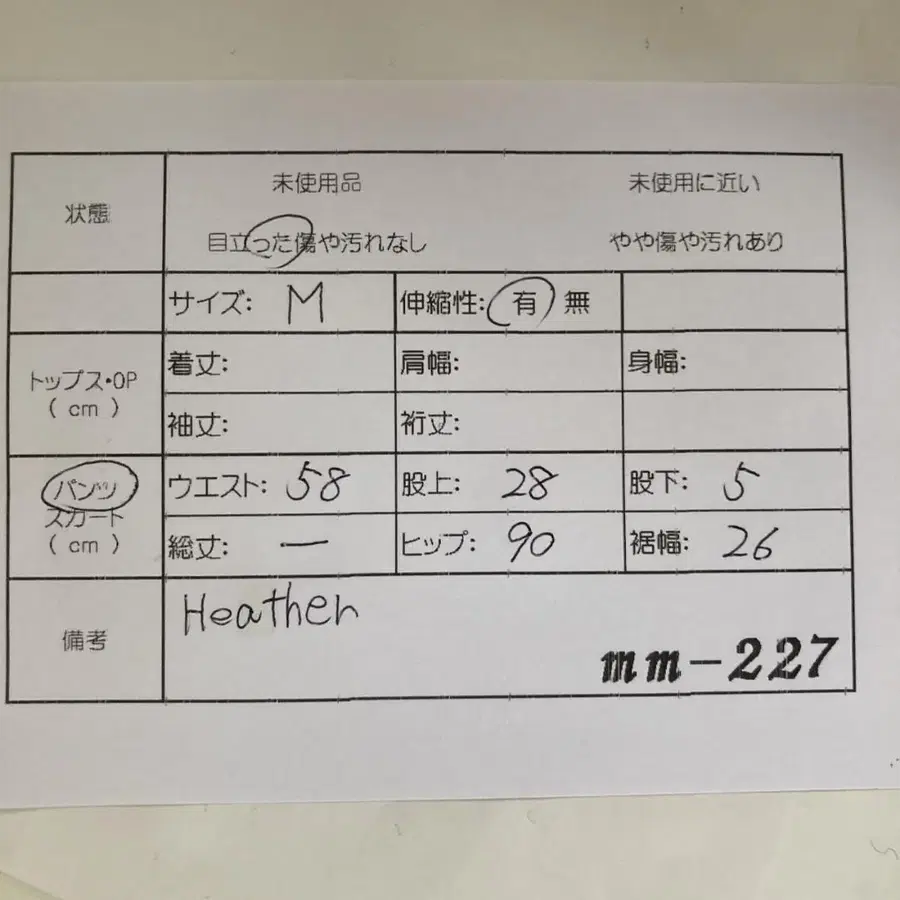 状態
未使用品 未使用に近い
目立った傷や汚れなし やや傷や汚れあり
サイズ: M 伸縮性: 有 無
トップス・OP
( cm )
着丈: 肩幅: 身幅:
袖丈: 裄丈:
パンツ
スカート
( cm )
ウエスト: 58 股上: 28 股下: 5
総丈: ー ヒップ: 90 裾幅: 26
備考
Heather
mm-227